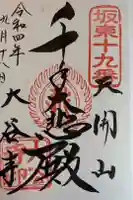 坂東十九番
天開山
千手大悲殿
大谷寺
令和四年
九月十八日